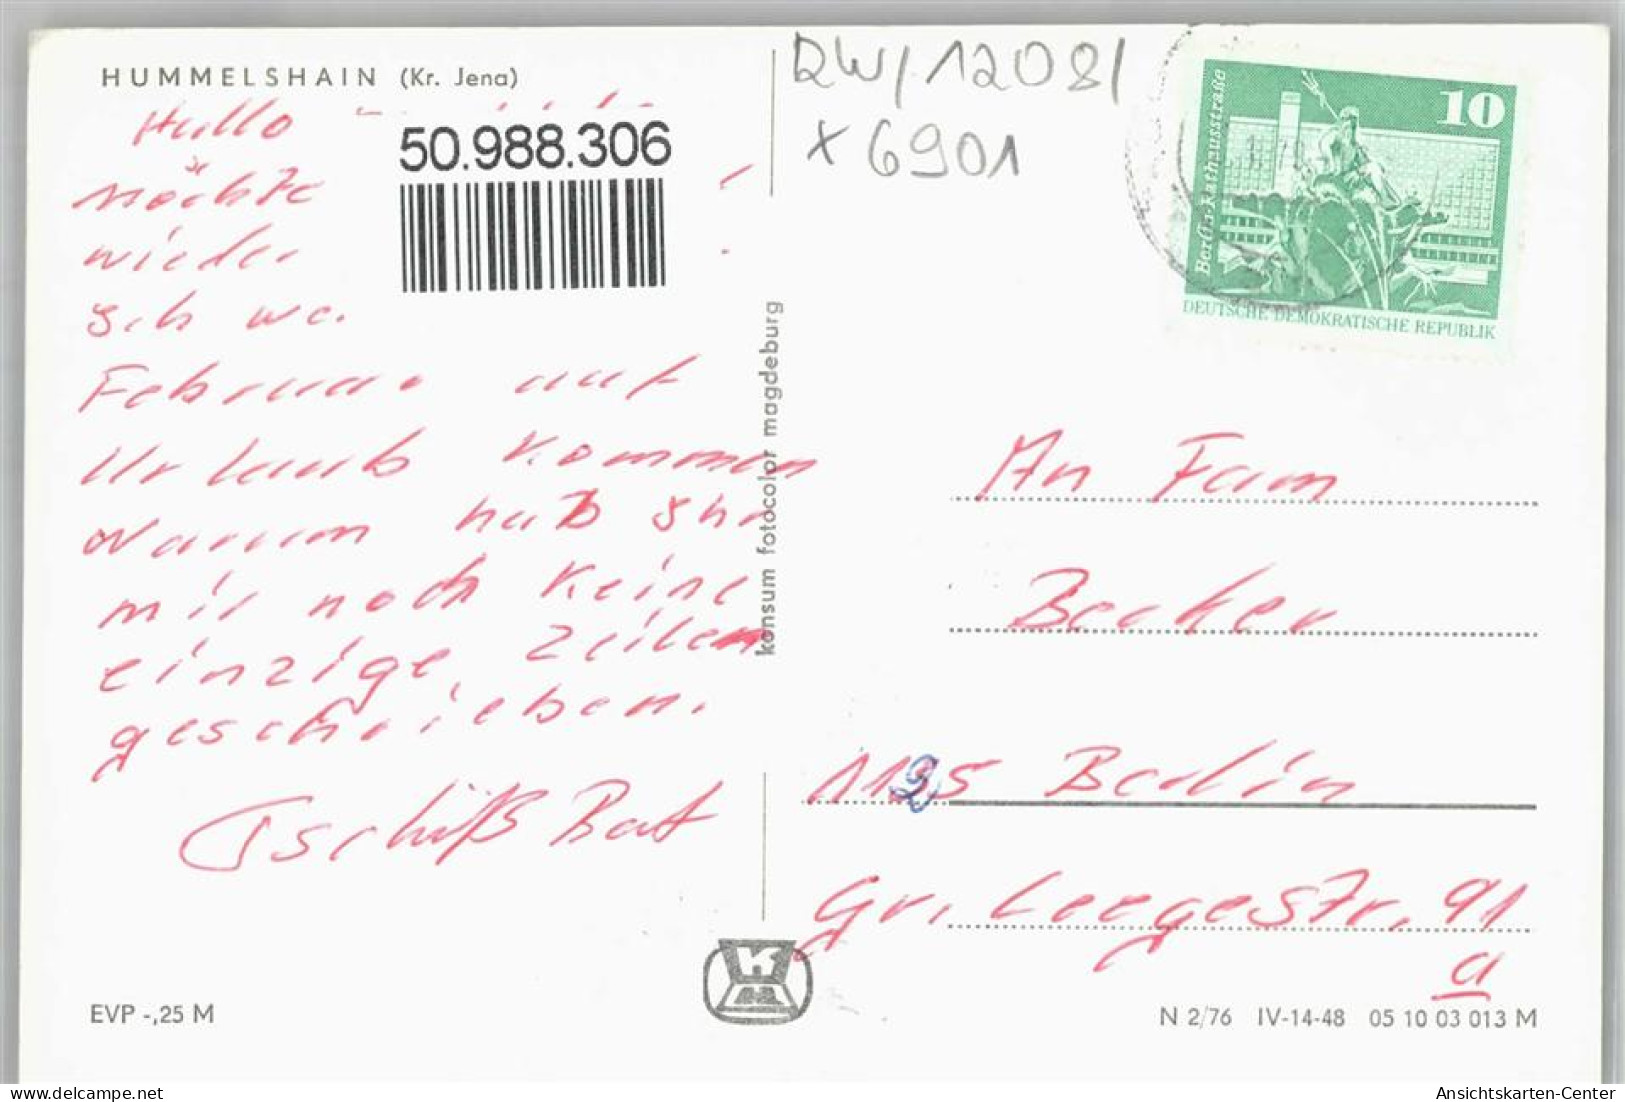 HUMMELSHAIN (Kr. Jena)
Hallo
50.988.306
möchte
wieder
Februar auf
Urlaub kommen
Warum habt Ihr
mir noch keine
einzige Zeilen
geschrieben.
Tschüß Beat
EVP -,25 M
konsum fotocolor magdeburg
RW/1208/
x 6901
10
Berlin-Rathausstraße
DEUTSCHE DEMOKRATISCHE REPUBLIK
An Fam
Becker
1195 Berlin
Gr. Leegestr. 91
a
N 2/76 IV-14-48 05 10 03 013 M
Ansichtskarten-Center
delcampe.net